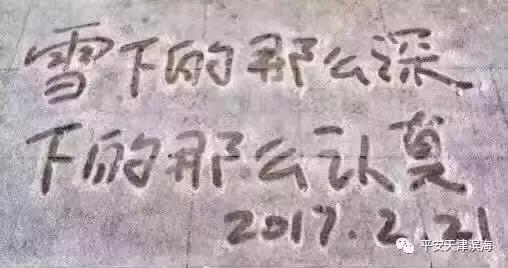 雪下的那么深
下的那么认真
2017.2.21
平安天津滨海